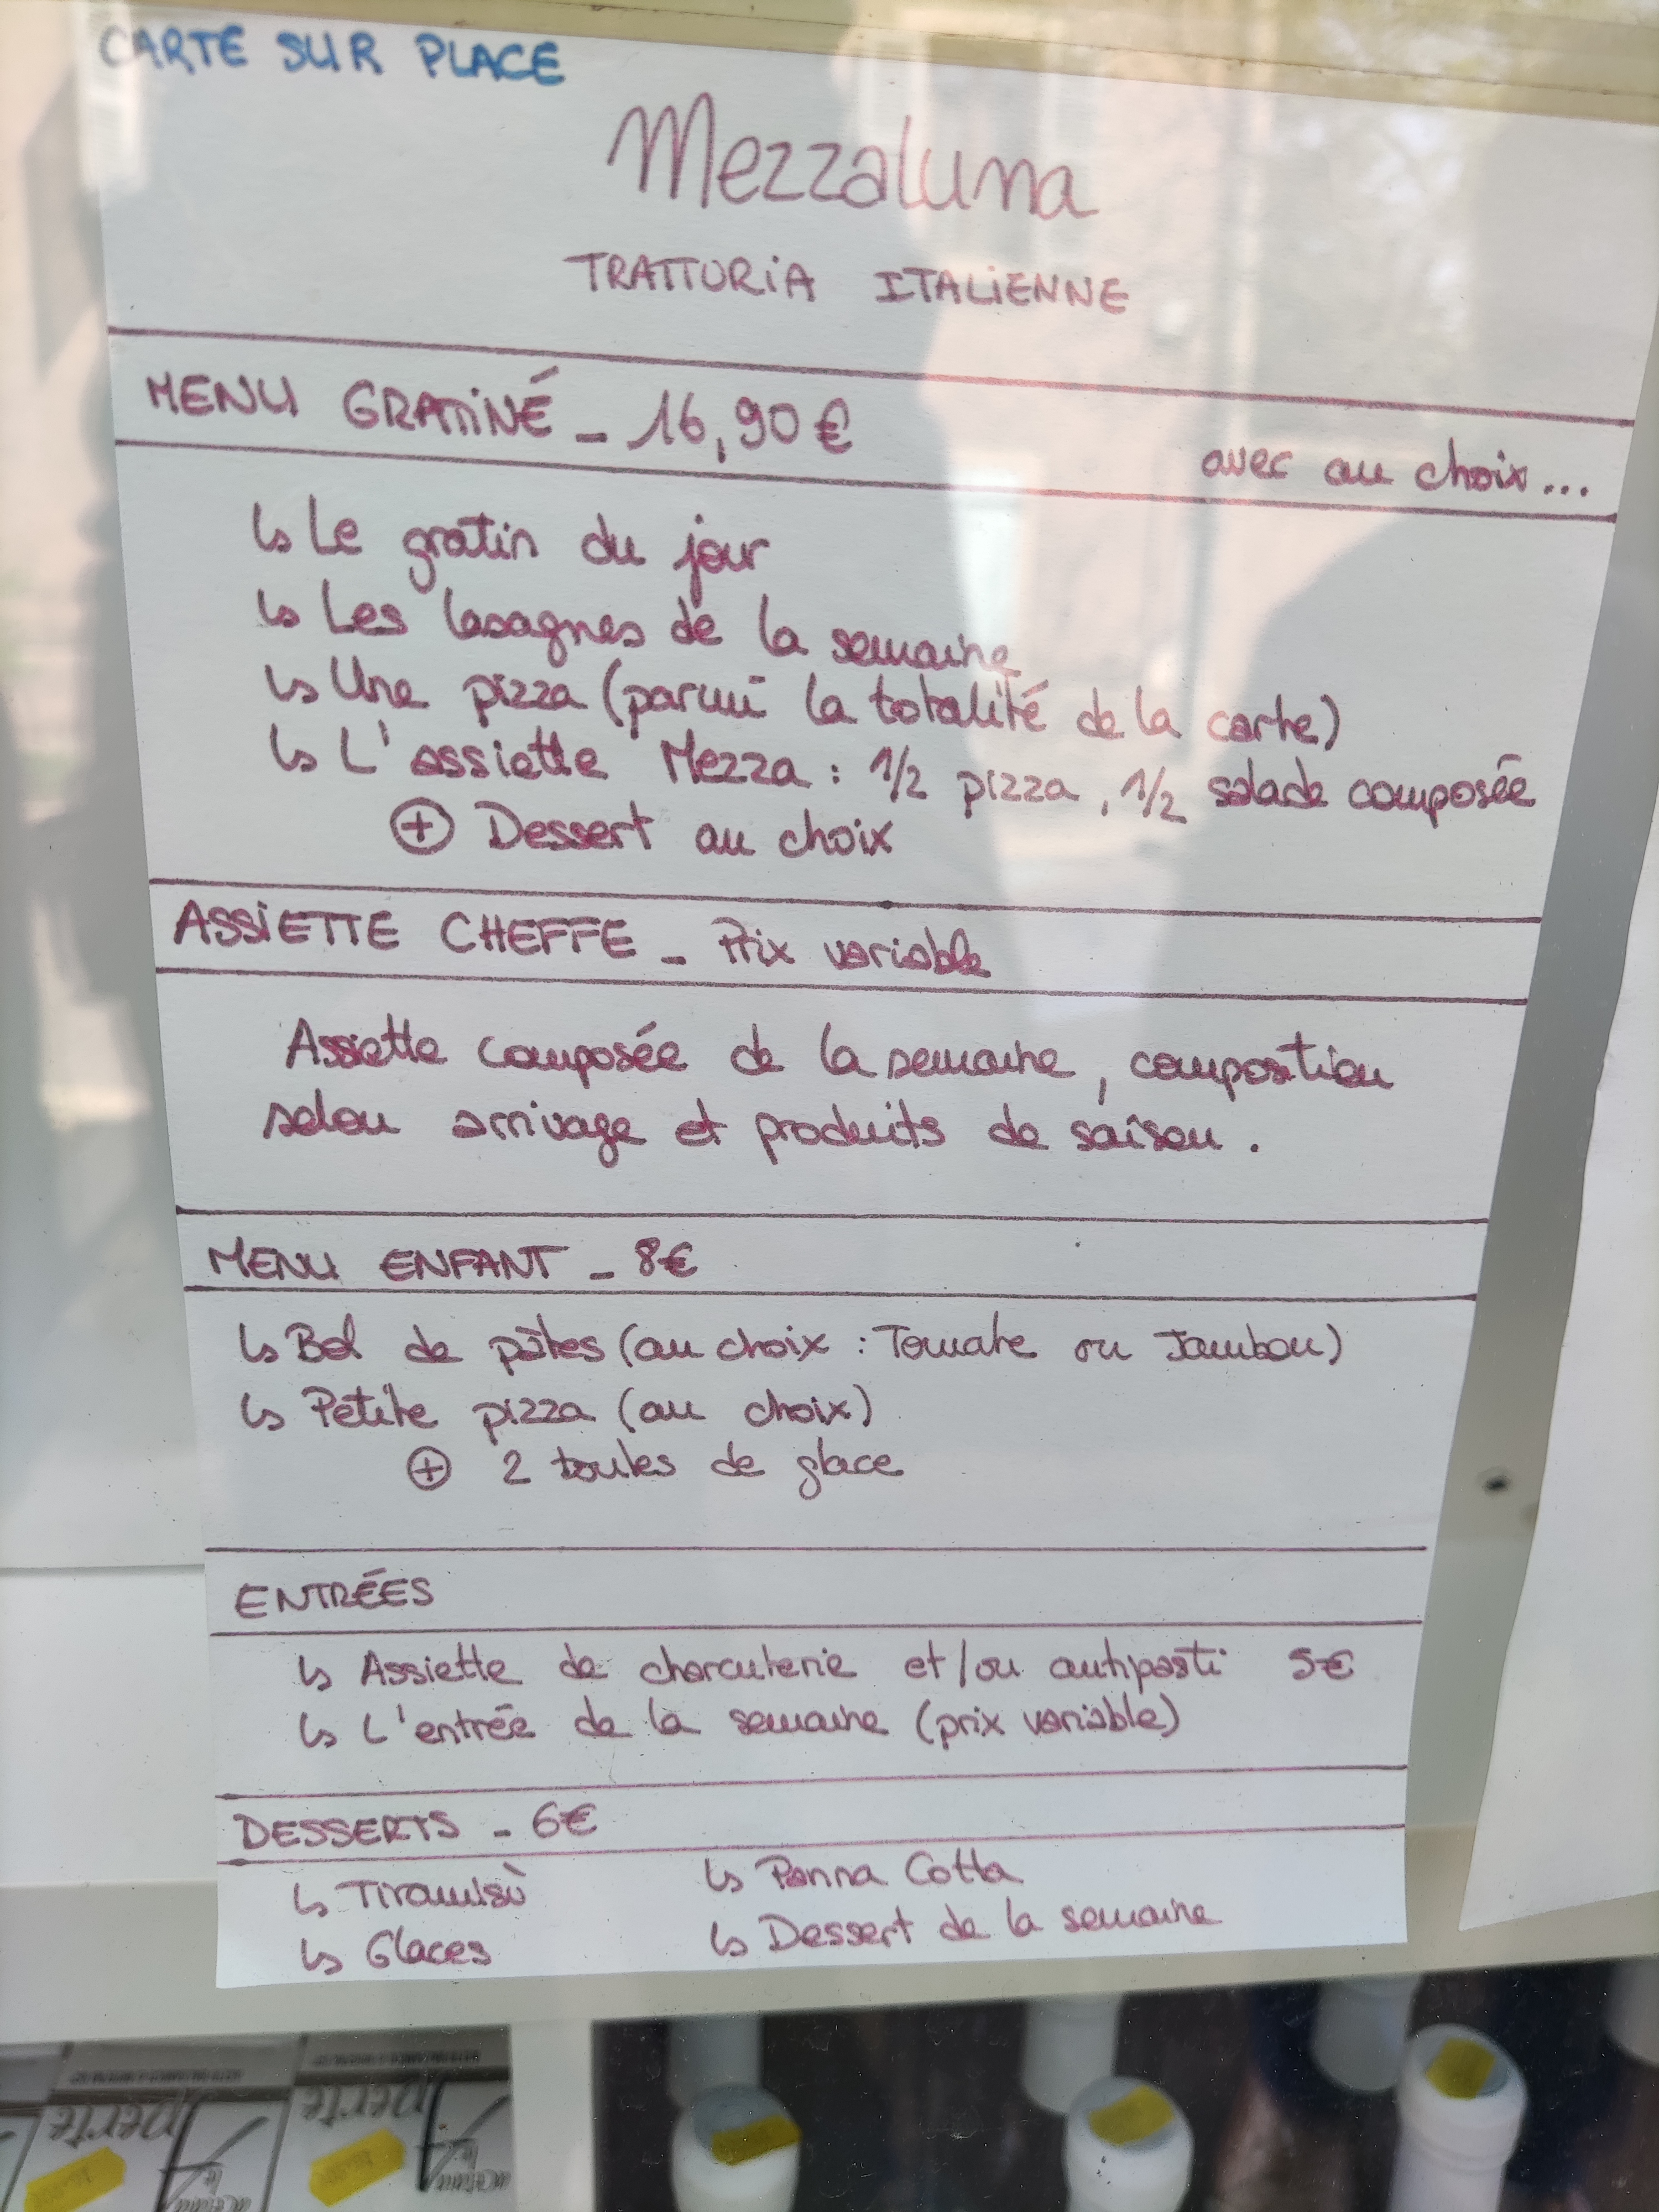 CARTE SUR PLACE
Mezzaluna
TRATTORIA ITALIENNE
MENU GRATINÉ - 16,90€
avec au choix...
↳ Le gratin du jour
↳ Les lasagnes de la semaine
↳ Une pizza (parmi la totalité de la carte)
↳ L'assiette Mezza : 1/2 pizza, 1/2 salade composée
⊕ Dessert au choix
ASSIETTE CHEFFE - Prix variable
Assiette composée de la semaine, composition
selon arrivage et produits de saison.
MENU ENFANT - 8€
↳ Bol de pâtes (au choix : Tomate ou Jambon)
↳ Petite pizza (au choix)
⊕ 2 boules de glace
ENTRÉES
↳ Assiette de charcuterie et/ou antipasti 5€
↳ L'entrée de la semaine (prix variable)
DESSERTS - 6€
↳ Tiramisù
↳ Panna Cotta
↳ Glaces
↳ Dessert de la semaine